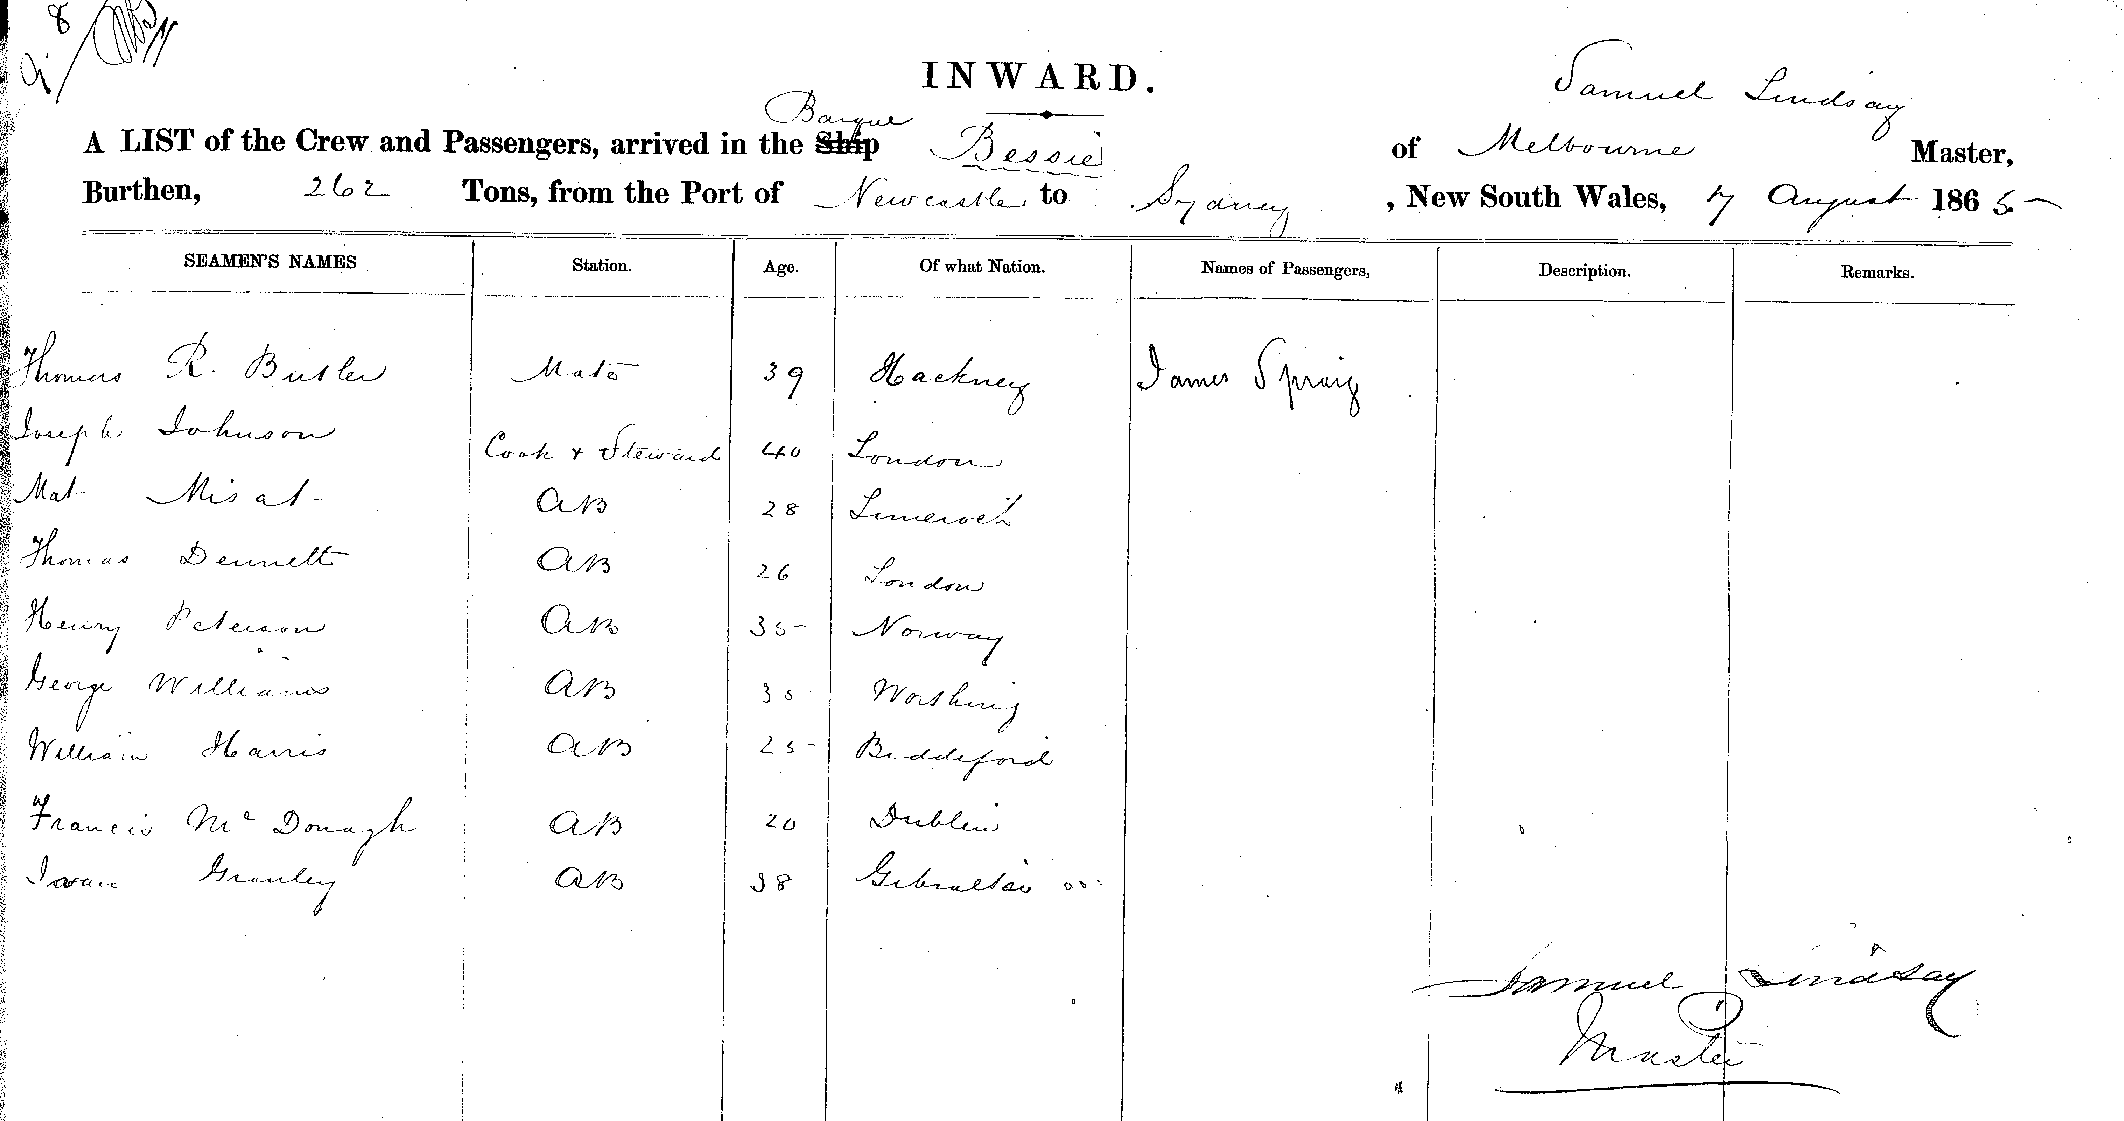 9/8
INWARD.
Samuel Lindsay
Barque
A LIST of the Crew and Passengers, arrived in the Ship Bessie of Melbourne Master,
Burthen, 262 Tons, from the Port of Newcastle to Sydney, New South Wales, 7 August 1865
SEAMEN'S NAMES Station. Age. Of what Nation. Names of Passengers, Description. Remarks.
Thomas R. Butler Mate 39 Hackney James Spraig
Joseph Johnson Cook + Steward 40 London
Mat Misat AB 28 Limerick
Thomas Dennett AB 26 London
Henry Peterson AB 35 Norway
George Williams AB 35 Worthing
William Harris AB 25 Biddeford
Francis McDonagh AB 20 Dublin
Granley AB 38 Gibraltar
Samuel Lindsay
Master